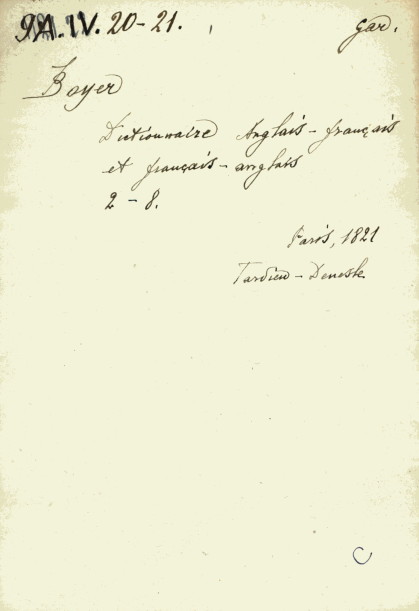 9A.IV. 20-21. gar.
Boyer
Dictionnaire Anglais-français
et français-anglais
2-8.
Paris, 1821
Tardieu-Denesle
C